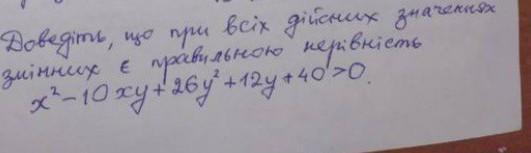 Доведіть, що при всіх дійсних значеннях
змінних є правильною нерівність
x² - 10xy + 26y² + 12y + 40 > 0.